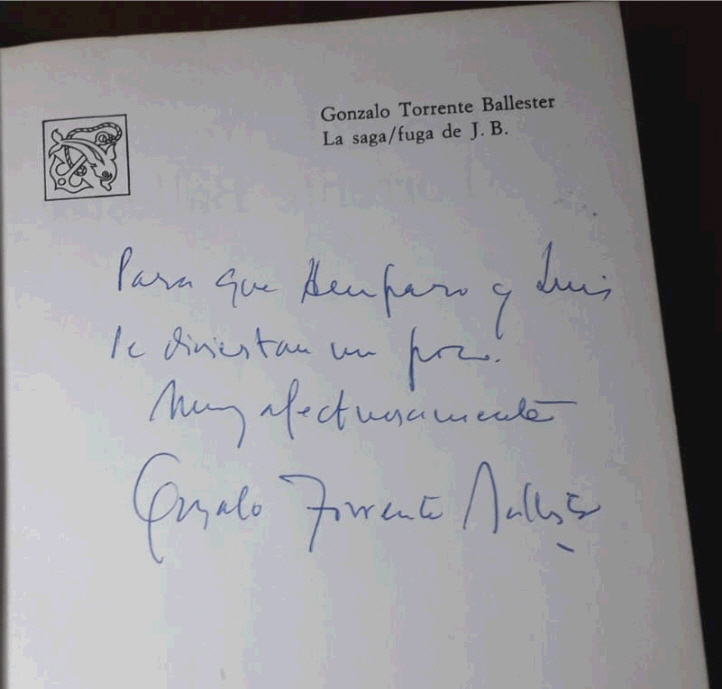 Gonzalo Torrente Ballester
La saga/fuga de J. B.
Para que Amparo y Luis
se diviertan un poco.
Muy afectuosamente
Gonzalo Torrente Ballester